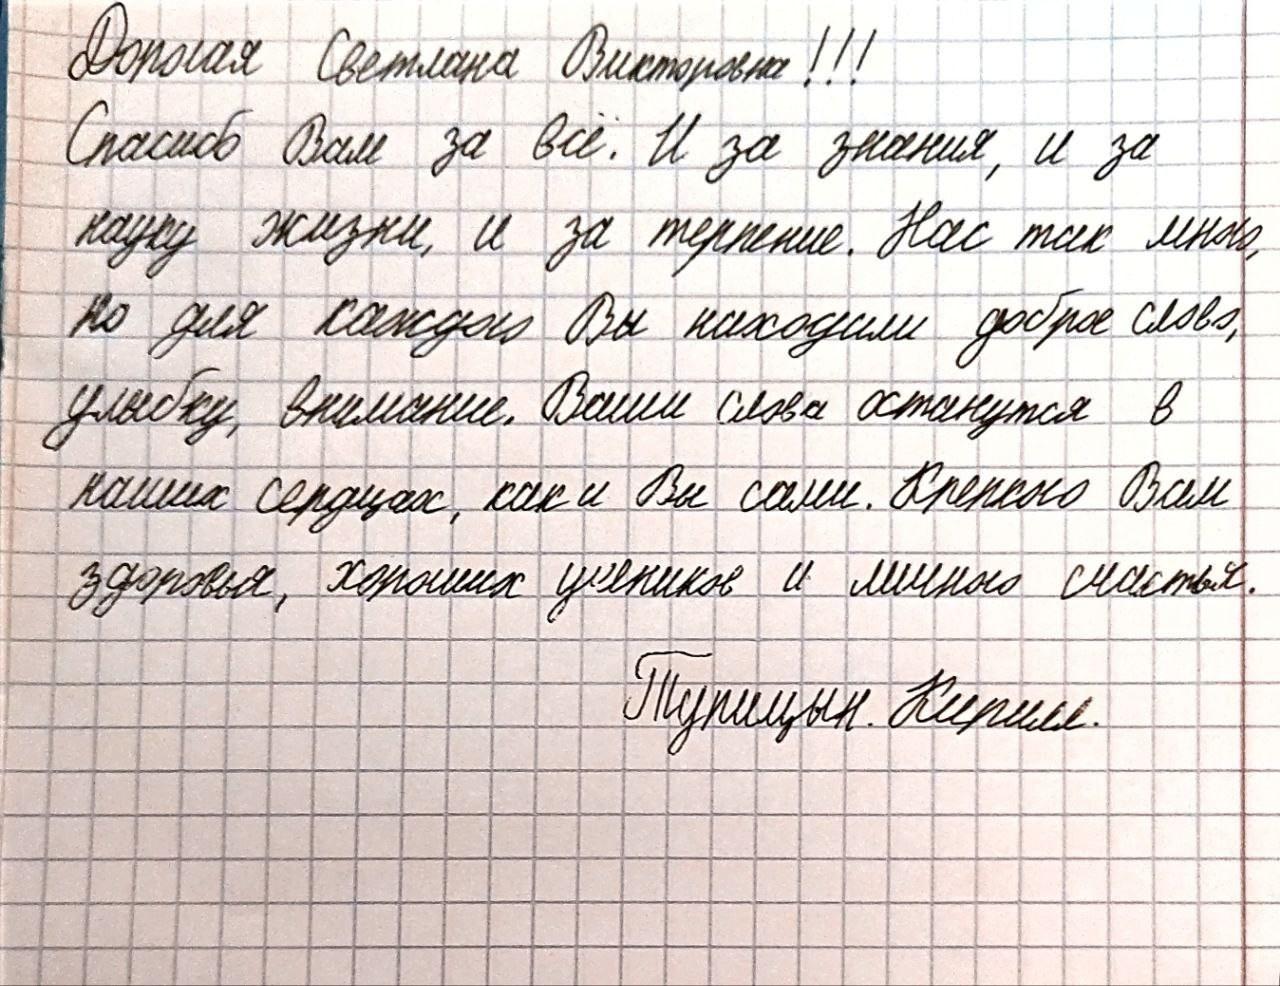 Дорогая Светлана Викторовна!!!
Спасибо Вам за всё. И за знания, и за
науку жизни, и за терпение. Нас так много,
но для каждого Вы находили доброе слово,
улыбку, внимание. Ваши слова останутся в
наших сердцах, как и Вы сами. Крепкого Вам
здоровья, хороших учеников и личного счастья.
Турицын. Кирилл.